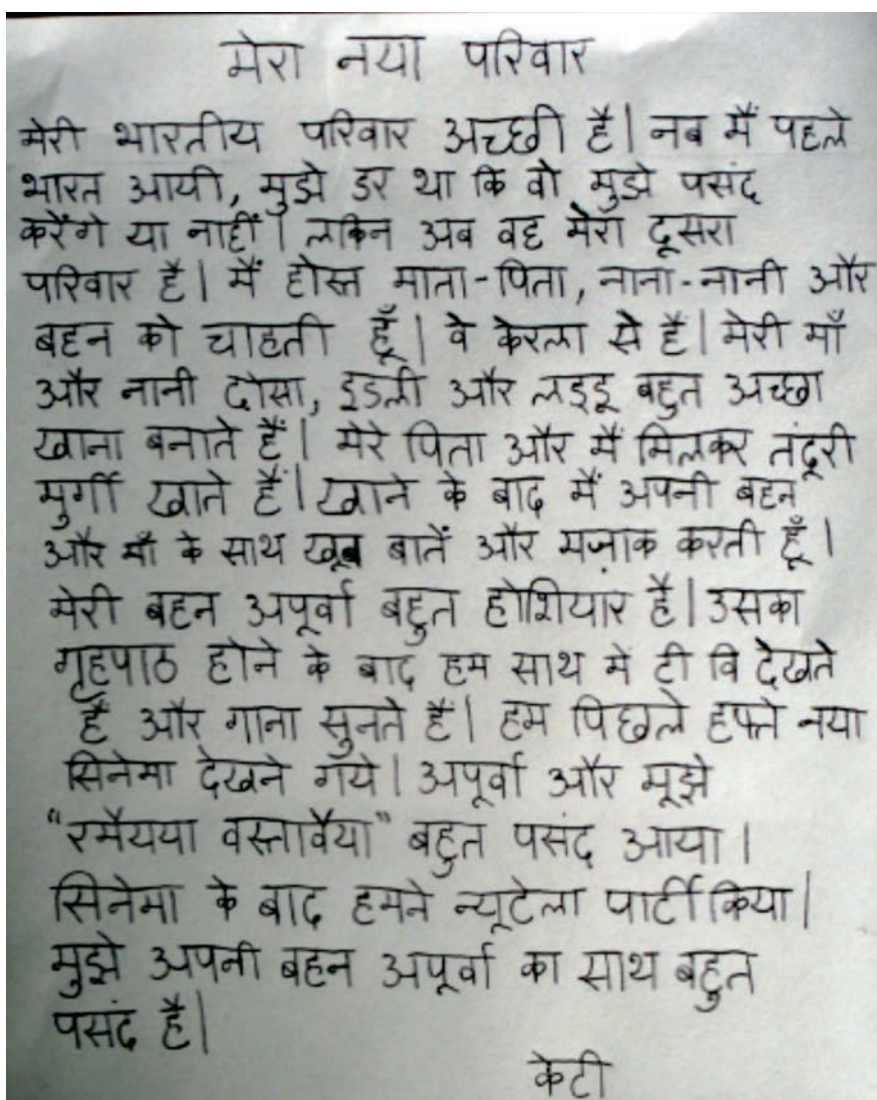 मेरा नया परिवार
मेरी भारतीय परिवार अच्छी है। जब मैं पहले
भारत आयी, मुझे डर था कि वो मुझे पसंद
करेंगे या नाहीं। लकिन अब वह मेरा दूसरा
परिवार है। मैं होस्त माता-पिता, नाना-नानी और
बहन को चाहती हूँ। वे केरला से हैं। मेरी माँ
और नानी दोसा, इडली और लड्डू बहुत अच्छा
खाना बनाते हैं। मेरे पिता और मैं मिलकर तंदूरी
मुर्गी खाते हैं। खाने के बाद मैं अपनी बहन
और माँ के साथ खूब बातें और मज़ाक करती हूँ।
मेरी बहन अपूर्वा बहुत होशियार है। उसका
गृहपाठ होने के बाद हम साथ में टी वि देखते
हैं और गाना सुनते हैं। हम पिछले हफ्ते नया
सिनेमा देखने गये। अपूर्वा और मूझे
"रमैयया वस्तावैया" बहुत पसंद आया।
सिनेमा के बाद हमने न्यूटेला पार्टी किया।
मुझे अपनी बहन अपूर्वा का साथ बहुत
पसंद है।
केटी